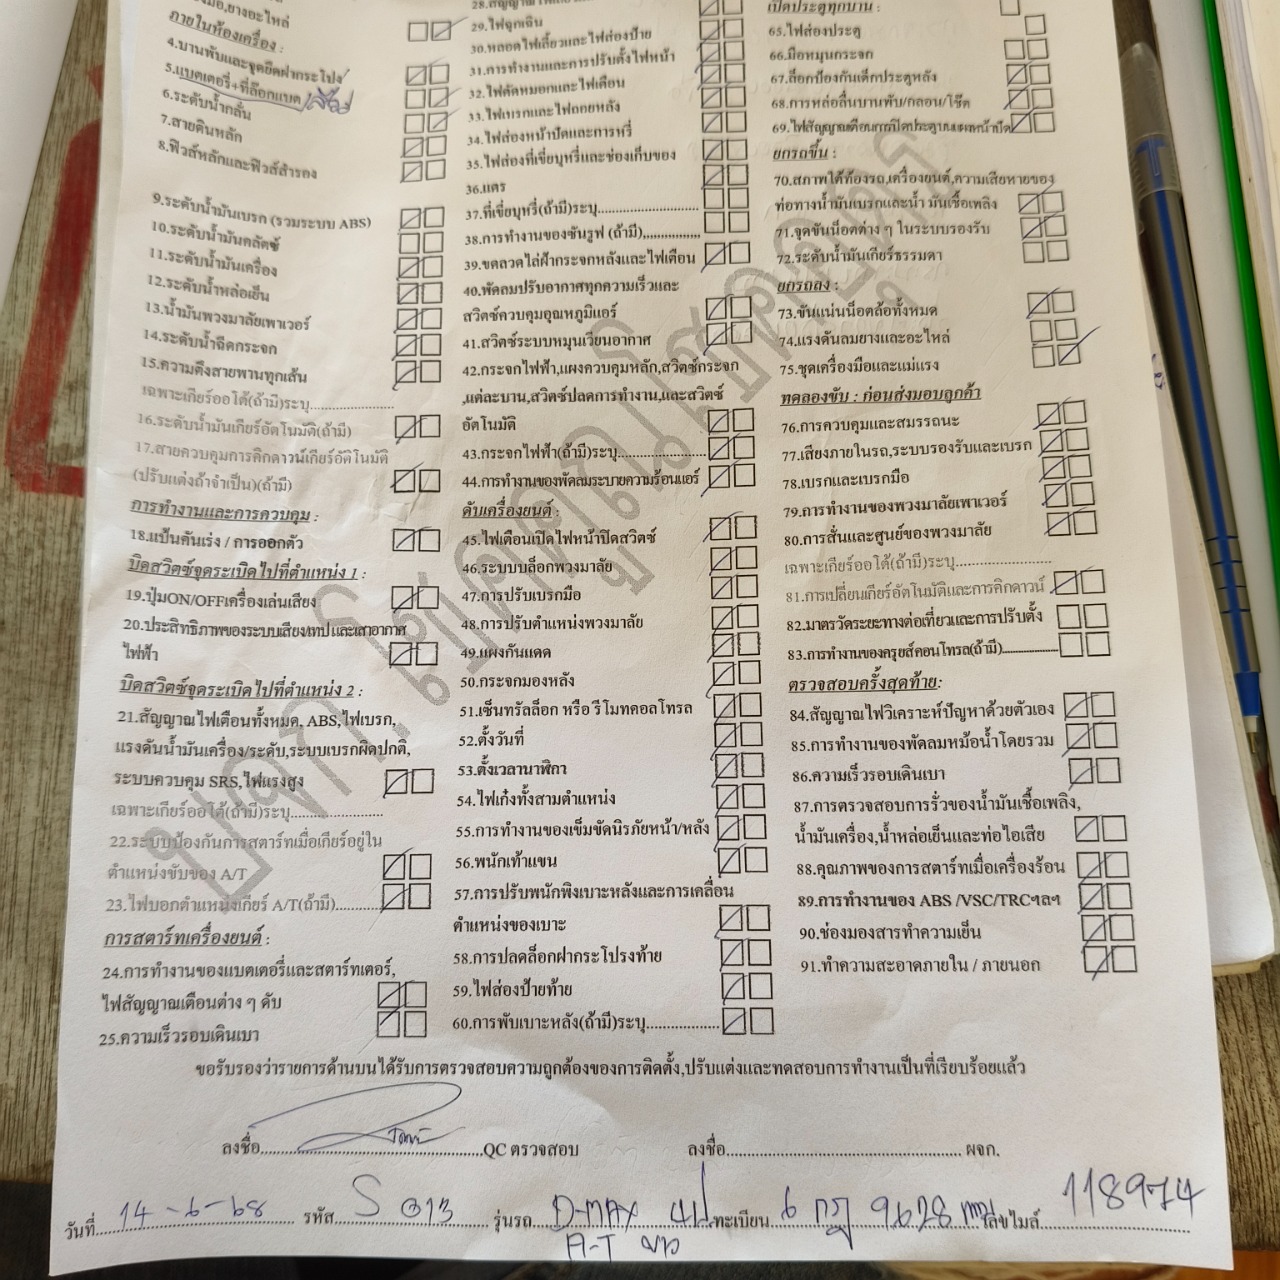 ภายในห้องเครื่อง :
4.บานพับและจุดยึดฝากระโปรง
5.แบตเตอรี่+ที่ล็อกแบต
6.ระดับน้ำกลั่น
7.สายดินหลัก
8.ฟิวส์หลักและฟิวส์สำรอง
9.ระดับน้ำมันเบรก (รวมระบบ ABS)
10.ระดับน้ำมันคลัตช์
11.ระดับน้ำมันเครื่อง
12.ระดับน้ำหล่อเย็น
13.น้ำมันพวงมาลัยเพาเวอร์
14.ระดับน้ำฉีดกระจก
15.ความตึงสายพานทุกเส้น
เฉพาะเกียร์ออโต้(ถ้ามี)ระบุ
16.ระดับน้ำมันเกียร์อัตโนมัติ(ถ้ามี)
17.สายควบคุมการคิกดาวน์เกียร์อัติโนมัติ
(ปรับแต่งถ้าจำเป็น)(ถ้ามี)
การทำงานและการควบคุม :
18.แป้นคันเร่ง / การออกตัว
บิดสวิตซ์จุดระเบิดไปที่ตำแหน่ง 1 :
19.ปุ่มON/OFFเครื่องเล่นเสียง
20.ประสิทธิภาพของระบบเสียง/เทปและเสาอากาศ
ไฟฟ้า
บิดสวิตซ์จุดระเบิดไปที่ตำแหน่ง 2 :
21.สัญญาณไฟเตือนทั้งหมด, ABS,ไฟเบรก,
แรงดันน้ำมันเครื่อง/ระดับ,ระบบเบรกผิดปกติ,
ระบบควบคุม SRS,ไฟแรงสูง
เฉพาะเกียร์ออโต้(ถ้ามี)ระบุ
22.ระบบป้องกันการสตาร์ทเมื่อเกียร์อยู่ใน
ตำแหน่งขับของ A/T
23.ไฟบอกตำแหน่งเกียร์ A/T(ถ้ามี)
การสตาร์ทเครื่องยนต์ :
24.การทำงานของแบตเตอรี่และสตาร์ทเตอร์,
ไฟสัญญาณเตือนต่าง ๆ ดับ
25.ความเร็วรอบเดินเบา
29.ไฟฉุกเฉิน
30.หลอดไฟเลี้ยวและไฟส่องป้าย
31.การทำงานและการปรับตั้งไฟหน้า
32.ไฟตัดหมอกและไฟเตือน
33.ไฟเบรกและไฟถอยหลัง
34.ไฟส่องหน้าปัดและการหรี่
35.ไฟส่องที่เขี่ยบุหรี่และช่องเก็บของ
36.แตร
37.ที่เขี่ยบุหรี่(ถ้ามี)ระบุ
38.การทำงานของซันรูฟ (ถ้ามี)
39.ขดลวดไล่ฝ้ากระจกหลังและไฟเตือน
40.พัดลมปรับอากาศทุกความเร็วและ
สวิตช์ควบคุมอุณหภูมิแอร์
41.สวิตช์ระบบหมุนเวียนอากาศ
42.กระจกไฟฟ้า,แผงควบคุมหลัก,สวิตช์กระจก
,แต่ละบาน,สวิตช์ปลดการทำงาน,และสวิตช์
อัตโนมัติ
43.กระจกไฟฟ้า(ถ้ามี)ระบุ
44.การทำงานของพัดลมระบายความร้อนแอร์
ดับเครื่องยนต์ :
45.ไฟเตือนเปิดไฟหน้าปิดสวิตช์
46.ระบบบล็อกพวงมาลัย
47.การปรับเบรกมือ
48.การปรับตำแหน่งพวงมาลัย
49.แผงกันแดด
50.กระจกมองหลัง
51.เซ็นทรัลล็อก หรือ รีโมทคอลโทรล
52.ตั้งวันที่
53.ตั้งเวลานาฬิกา
54.ไฟเก๋งทั้งสามตำแหน่ง
55.การทำงานของเข็มขัดนิรภัยหน้า/หลัง
56.พนักเท้าแขน
57.การปรับพนักพิงเบาะหลังและการเคลื่อน
ตำแหน่งของเบาะ
58.การปลดล็อกฝากระโปรงท้าย
59.ไฟส่องป้ายท้าย
60.การพับเบาะหลัง(ถ้ามี)ระบุ
เปิดประตูทุกบาน :
65.ไฟส่องประตู
66.มือหมุนกระจก
67.ล็อกป้องกันเด็กประตูหลัง
68.การหล่อลื่นบานพับ/กลอน/โช๊ต
69.ไฟสัญญาณเตือนการปิดประตูบนแผงหน้าปัด
ยกรถขึ้น :
70.สภาพใต้ท้องรถ,เครื่องยนต์,ความเสียหายของ
ท่อทางน้ำมันเบรกและน้ำ มันเชื้อเพลิง
71.จุดขันน็อตต่าง ๆ ในระบบรองรับ
72.ระดับน้ำมันเกียร์ธรรมดา
ยกรถลง :
73.ขันแน่นน็อตล้อทั้งหมด
74.แรงดันลมยางและอะไหล่
75.ชุดเครื่องมือและแม่แรง
ทดลองขับ : ก่อนส่งมอบลูกค้า
76.การควบคุมและสมรรถนะ
77.เสียงภายในรถ,ระบบรองรับและเบรก
78.เบรกและเบรกมือ
79.การทำงานของพวงมาลัยเพาเวอร์
80.การสั่นและศูนย์ของพวงมาลัย
เฉพาะเกียร์ออโต้(ถ้ามี)ระบุ
81.การเปลี่ยนเกียร์อัตโนมัติและการคิกดาวน์
82.มาตรวัดระยะทางต่อเที่ยวและการปรับตั้ง
83.การทำงานของครุยส์คอนโทรล(ถ้ามี)
ตรวจสอบครั้งสุดท้าย:
84.สัญญาณไฟวิเคราะห์ปัญหาด้วยตัวเอง
85.การทำงานของพัดลมหม้อน้ำโดยรวม
86.ความเร็วรอบเดินเบา
87.การตรวจสอบการรั่วของน้ำมันเชื้อเพลิง,
น้ำมันเครื่อง,น้ำหล่อเย็นและท่อไอเสีย
88.คุณภาพของการสตาร์ทเมื่อเครื่องร้อน
89.การทำงานของ ABS /VSC/TRCฯลฯ
90.ช่องมองสารทำความเย็น
91.ทำความสะอาดภายใน / ภายนอก
ขอรับรองว่ารายการด้านบนได้รับการตรวจสอบความถูกต้องของการติดตั้ง,ปรับแต่งและทดสอบการทำงานเป็นที่เรียบร้อยแล้ว
ลงชื่อ QC ตรวจสอบ ลงชื่อ ผจก.
วันที่ 14-6-68 รหัส S 013 รุ่นรถ D-MAX 4ป ทะเบียน 6 กฎ 9628 กทม เลขไมล์ 118974
A-T ขาว